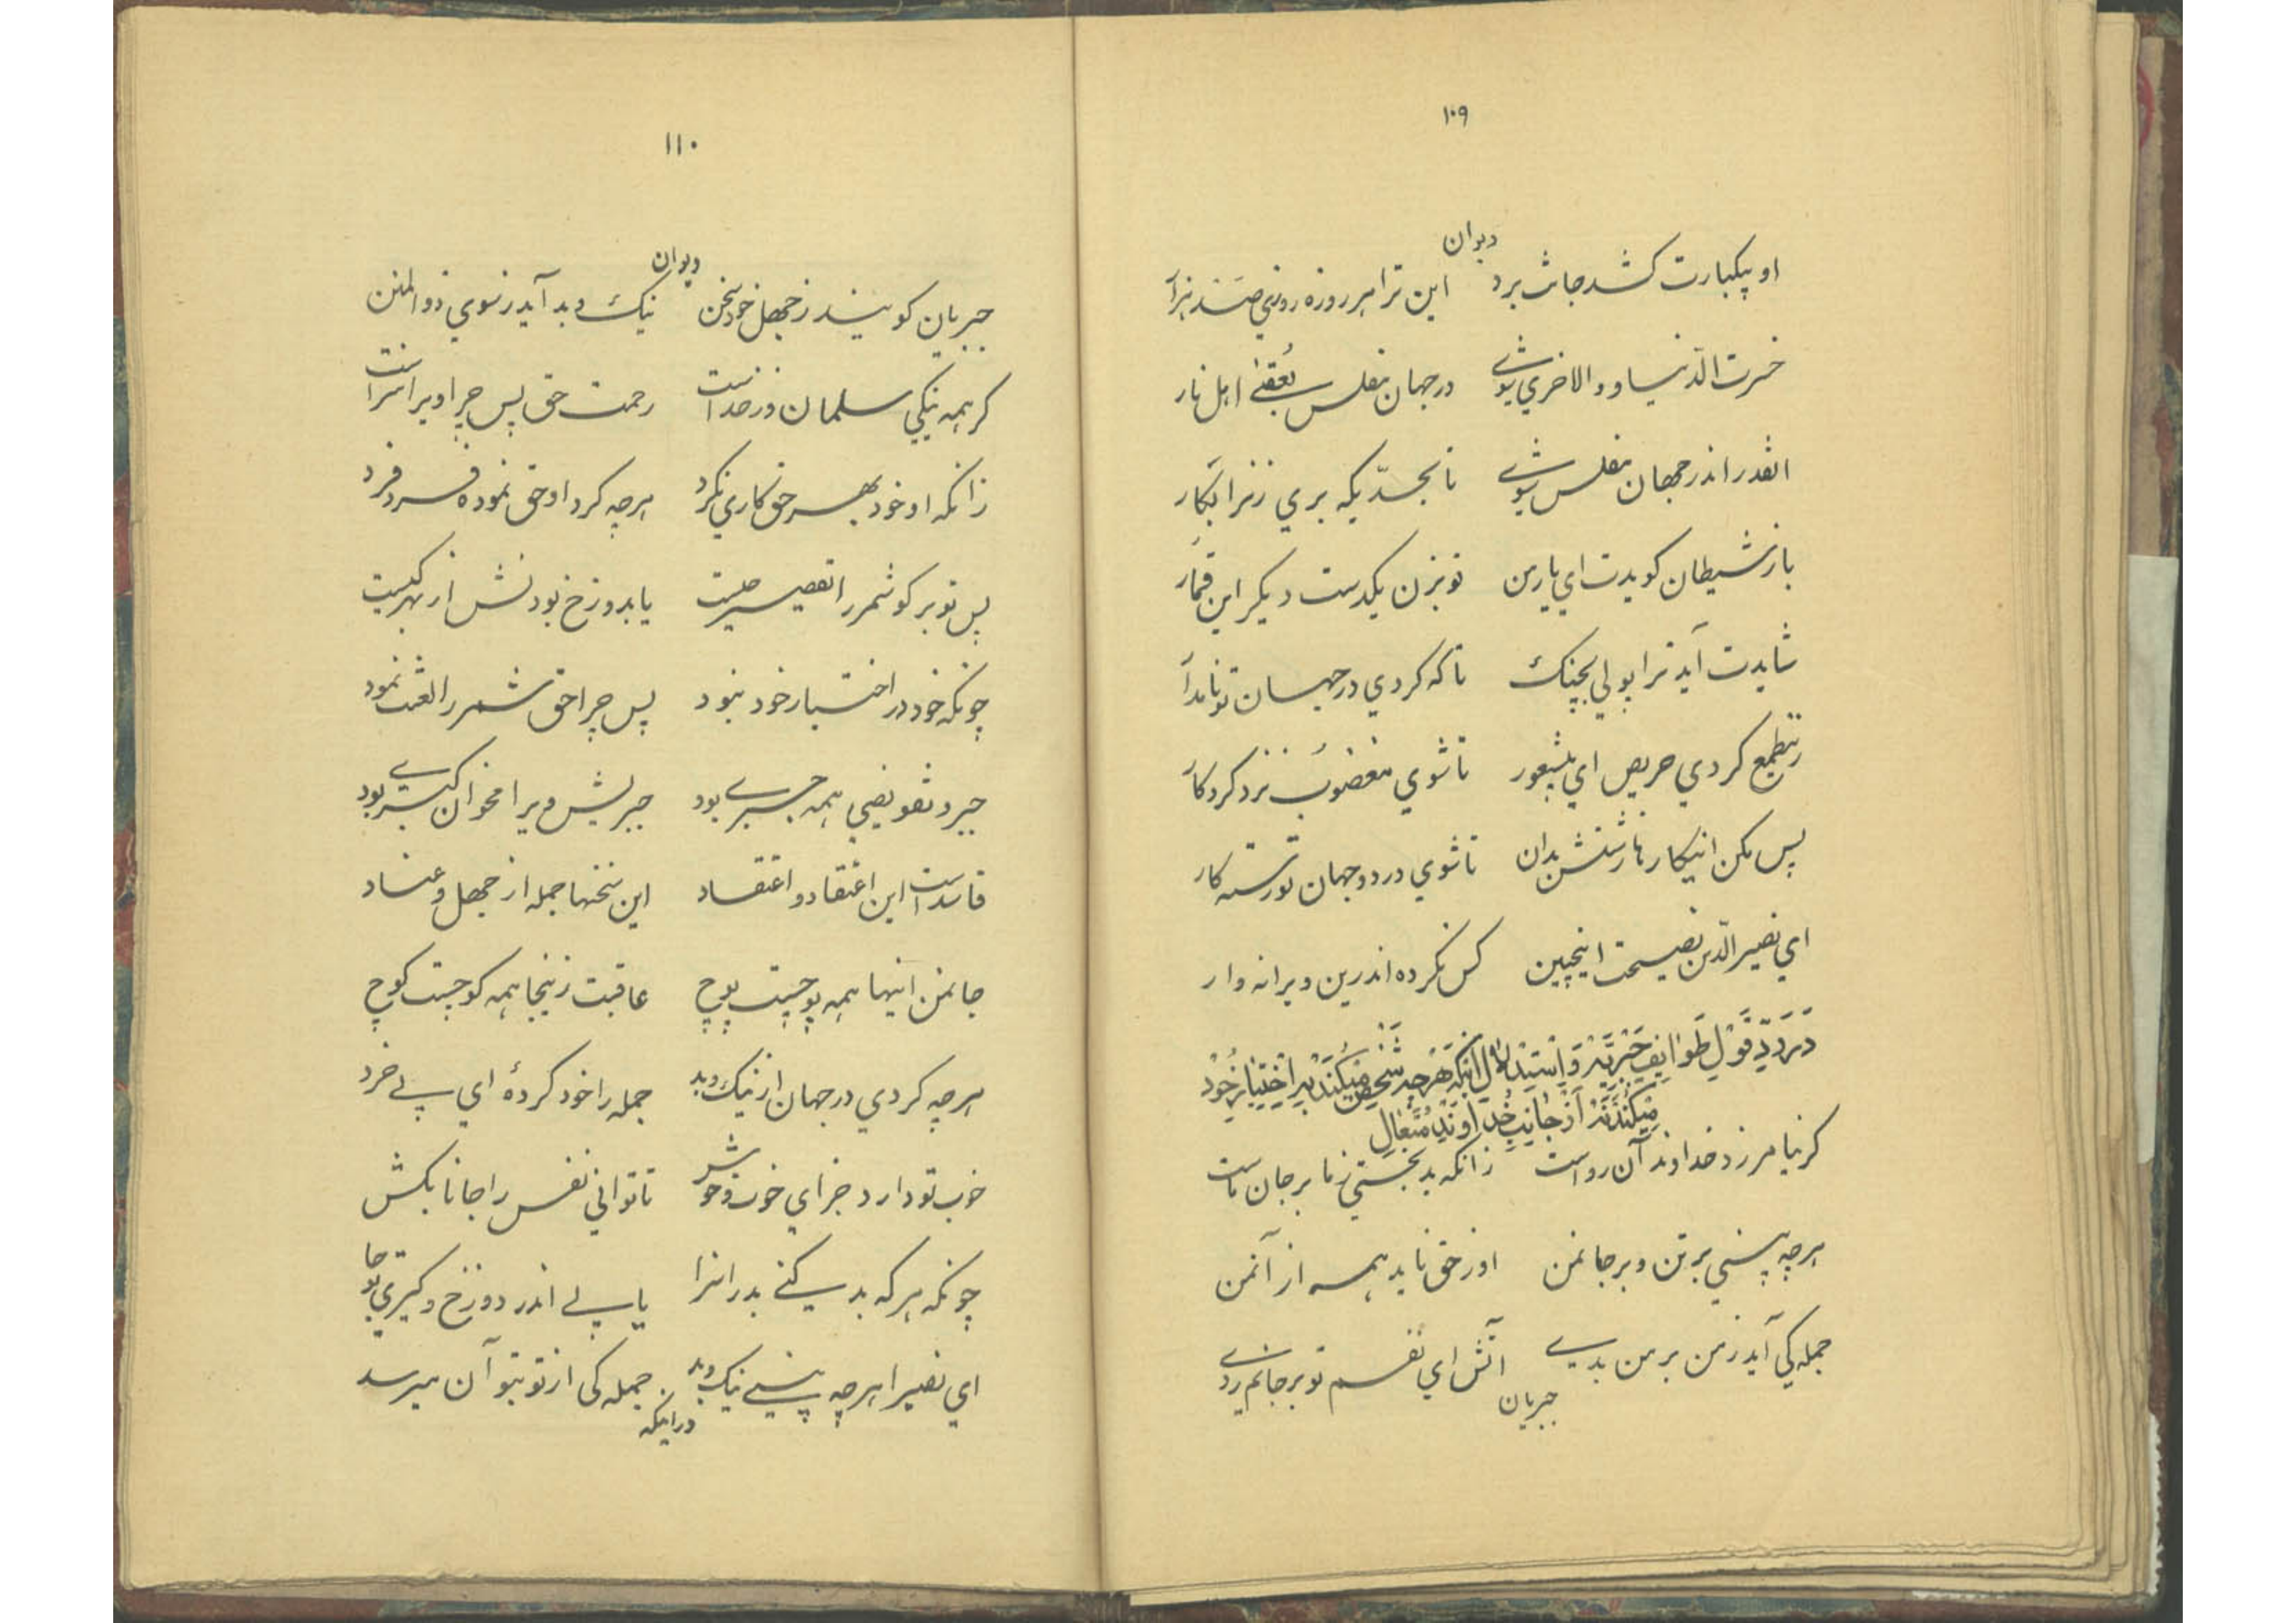 ۱۰۹
دیوان
او بیکبارت کشد جانت برد این ترا هر روزه روزی صد هزار
خسرت الدنیا و والاخری شوی در جهان مفلس بعقبی اهل نار
انقدر اندر جهان مفلس شوی تا بحدیکه بری زنرا بکار
باز شیطان کویدت ای یار من تو بزن یکدست دیکر این قمار
شایدت آید ترا پولی بچنک تا که کردی در جهان تو نامدار
طمع کردی حریص ای بیشعور تا شوی مغضوب نزد کردکار
پس مکن اینکارها زشتش بدان تا شوی در دو جهان تو رستکار
ای نصیر الدین نصیحت اینچنین کس نکرده اندرین ویرانه وار
در ردّ قول طوایف جبریّه و استدلال اینکه هر چه شخص میکند به اختیار خود
میکند نه از جانب خداوند متعال
کر نیامرزد خداوند آن رواست زانکه بدبختی زما بر جان ماست
هر چه بینی بر تن و بر جانمن او ز حق ناید همه از آنمن
جمله کی آید زمن بر من بدی آتش ای نفسم تو بر جانم زدی
جبریان
۱۱۰
دیوان
جبریان کویند ز جهل خود سخن نیک و بد آید ز سوی ذوالمنن
کر همه نیکی سلمان از خداست رحمت حق پس چرا ویرا سزاست
زانکه او خود بهر حق کاری نکرد هر چه کرد او حق نموده فرد فرد
پس تو بر کو شمر را تقصیر چیست یا بدوزخ بودنش از بهر کیست
چونکه خود در اختیار خود نبود پس چرا حق شمر را لعنت نمود
جبر و تفویضی همه جبری بود جبریش ویرا مخوان کبری بود
فاسد است این اعتقاد و اعتقاد این سخنها جمله از جهل و عناد
جانمن اینها همه پوچست پوچ عاقبت زینجا همه کوچست کوچ
هر چه کردی در جهان از نیک و بد جمله را خود کردهٔ ای بی خرد
خوب تو دارد جزای خوب و خوش تا توانی نفس را جانا بکش
چونکه هر که بد کنی بد را سزا یابی اندر دوزخ و کیری تو جا
ای نصیرا هر چه بینی نیک و بد جمله کی از تو بتو آن میرسد
در اینکه